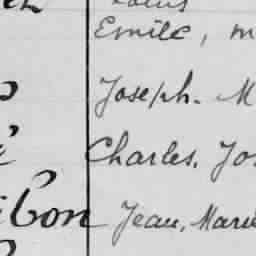 Emile, m
Joseph. M
Charles. Jos
bon Jean, Marie